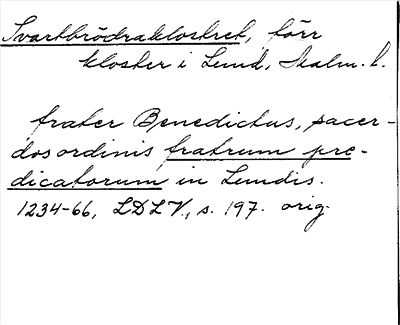 Svartbrödraklostret, förr
kloster i Lund, Malm. l.
frater Benedictus, sacer-
dos ordinis fratrum pre-
dicatorum in Lundis.
1234-66, LDLV, s. 197. orig.